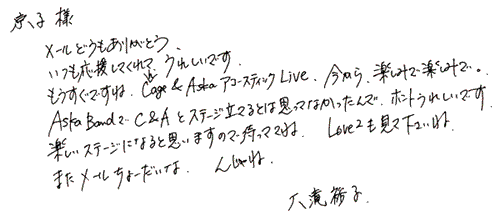 京子様
メールどうもありがとう、
いつも応援してくれて、うれしいです
もうすぐですね、Cage & Aska アコースティック Live、今から、楽しみで楽しみで。
Aska Bandで C&A とステージ立てるとは思ってなかったんで、ホントうれしいです
楽しいステージになると思いますので待っててね、 Love2も見て下さいね、
またメールちょーだいな、 んじゃね、